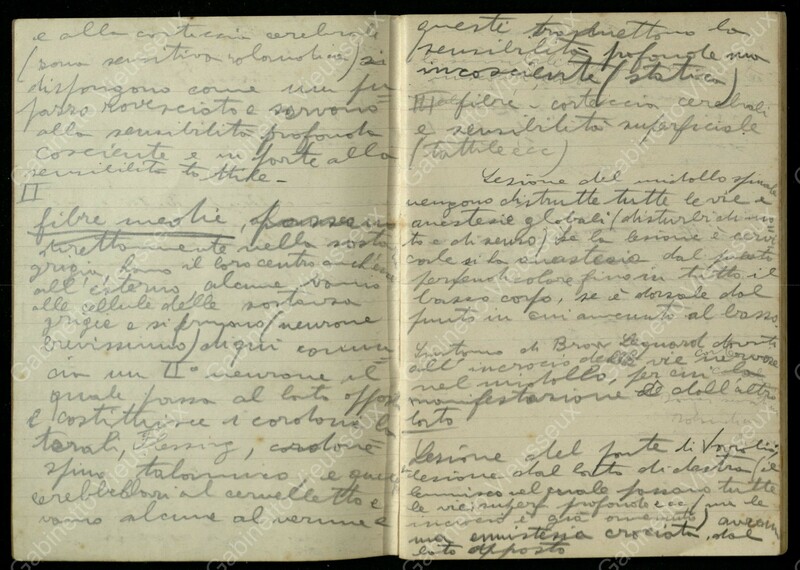 e alla corteccia cerebrale
(zona sensitiva rolandica) si
dispongono come un fu
passo rovesciato e servono
alla sensibilità profonda
cosciente e in parte alla
sensibilità tattile -
II
fibre medie, passano
direttamente nella sosta
grigia, hanno il loro centro anch'esse
all'esterno, alcune vanno
alle cellule delle sostanza
grigie e si fermano (neurone
brevissimo) di qui comin
cia un II° neurone il
quale passa al lato opposto
e costituisce i cordoni la
terali, Flessing, cordone
spino talamico, e quei
cerebellari al cervelletto e
vanno alcune al verme e
questi trasmettono la
sensibilità profonda ma
incosciente (statica)
III fibre - corteccia cerebrali
e sensibilità superficiale
(tattile ecc)
Lesione del midollo spinale
vengono distrutte tutte le vie e
anestesie globali (disturbi di mo
to e di senso) se la lesione è cervi
cale si ha anestesia dal punto
fino in tutto il
basso corpo, se è dorsale dal
punto in cui avvenuto al basso.
Sintomo di Brow Sequard dovuti
all'incrocio delle vie nervose
nel midollo, per cui la
manifestazione è dall'altro
lato
Lesione del ponte di Varolio,
lesione dal lato di destra, il
lemnisco nel quale passano tutte
le vie superf profonde ecc, (ma le
incrocio è già avvenuto) avremo
una emistesia crociata, dal
lato opposto